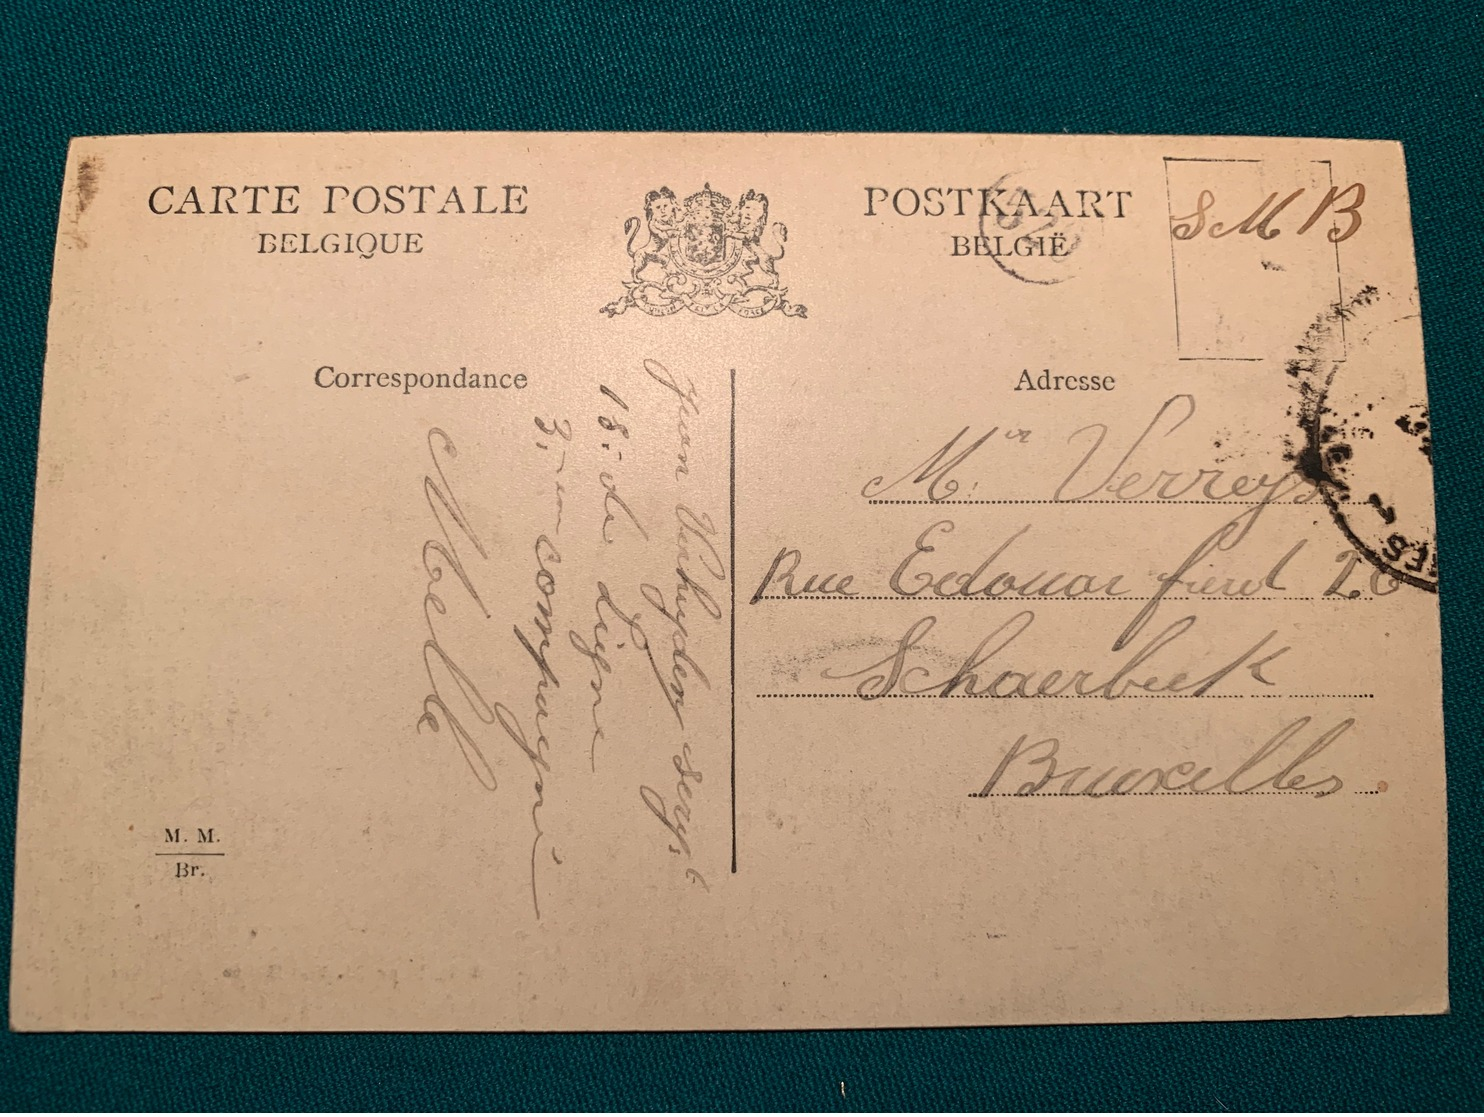 CARTE POSTALE
BELGIQUE
POSTKAART
BELGIË
S M B
Correspondance
Adresse
Jean Verheyden serg.t
18. de Ligne
3.me compagnie
Mr Verreyt
Rue Edouar fierd 26
Schaerbeek
Bruxelles
M. M.
Br.